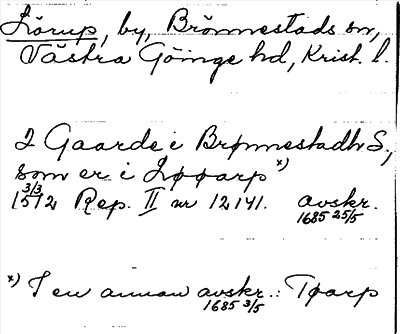 Lörup, by, Brönnestads sn,
Västra Göinge hd, Krist. l.
2 Gaarde i Brønnestadh S.,
som er i Løøarp x)
1512 3/3 Rep. II nr 12141. avskr. 1685 25/5
x) I en annan avskr.: Tøarp
1685 3/5